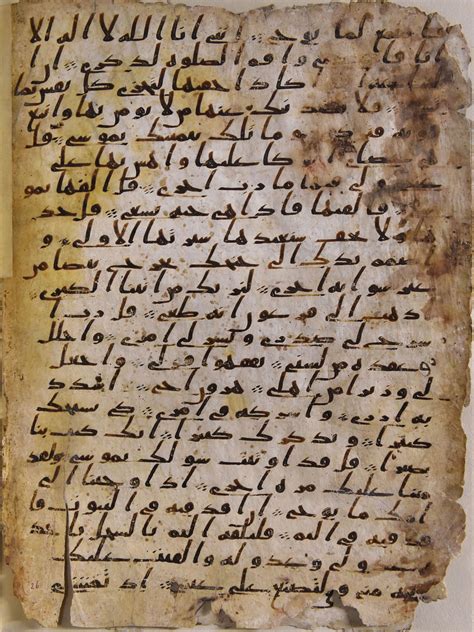 فاستمع لما يوحى انني انا الله لا اله الا
انا فاعبدني واقم الصلوه لذكري ان
اكاد اخفيها لتجزى كل نفس بما
فلا يصدنك عنها من لا يومن بها واتبع
هويه فتردى وما تلك بيمينك يموسى قل
هي عصاي اتوكا عليها واهش بها على
غنمي ولي فيها مارب اخرى قل القها يمو
سى فالقيها فاذا هي حيه تسعى قل خذ
ها ولا تخف سنعيدها سيرتها الاولى و
اضمم يدك الى جنحك تخرج بيضا من
غير سو ايه اخرى لنريك من ايتنا الكبرى
اذهب الى فرعون انه طغى قل رب ا
شرح لي صدري ويسر لي امري واحلل
عقده من لسني يفقهوا قولي واجعل
لي وزيرا من اهلي هرون اخي اشدد
به ازري واشركه في امري كي نسبحك
كثيرا ونذكرك كثيرا انك كنت بنا
بصيرا قل قد اوتيت سولك يموسى ولقد
مننا عليك مره اخرى اذ اوحينا الى
امك ما يوحى ان اقذفيه في التبوت فا
قذفيه في اليم فليلقه اليم بالسحل ياخذه
عدو لي وعدو له والقيت عليك
محبه مني ولتصنع على عيني اذ تمشي